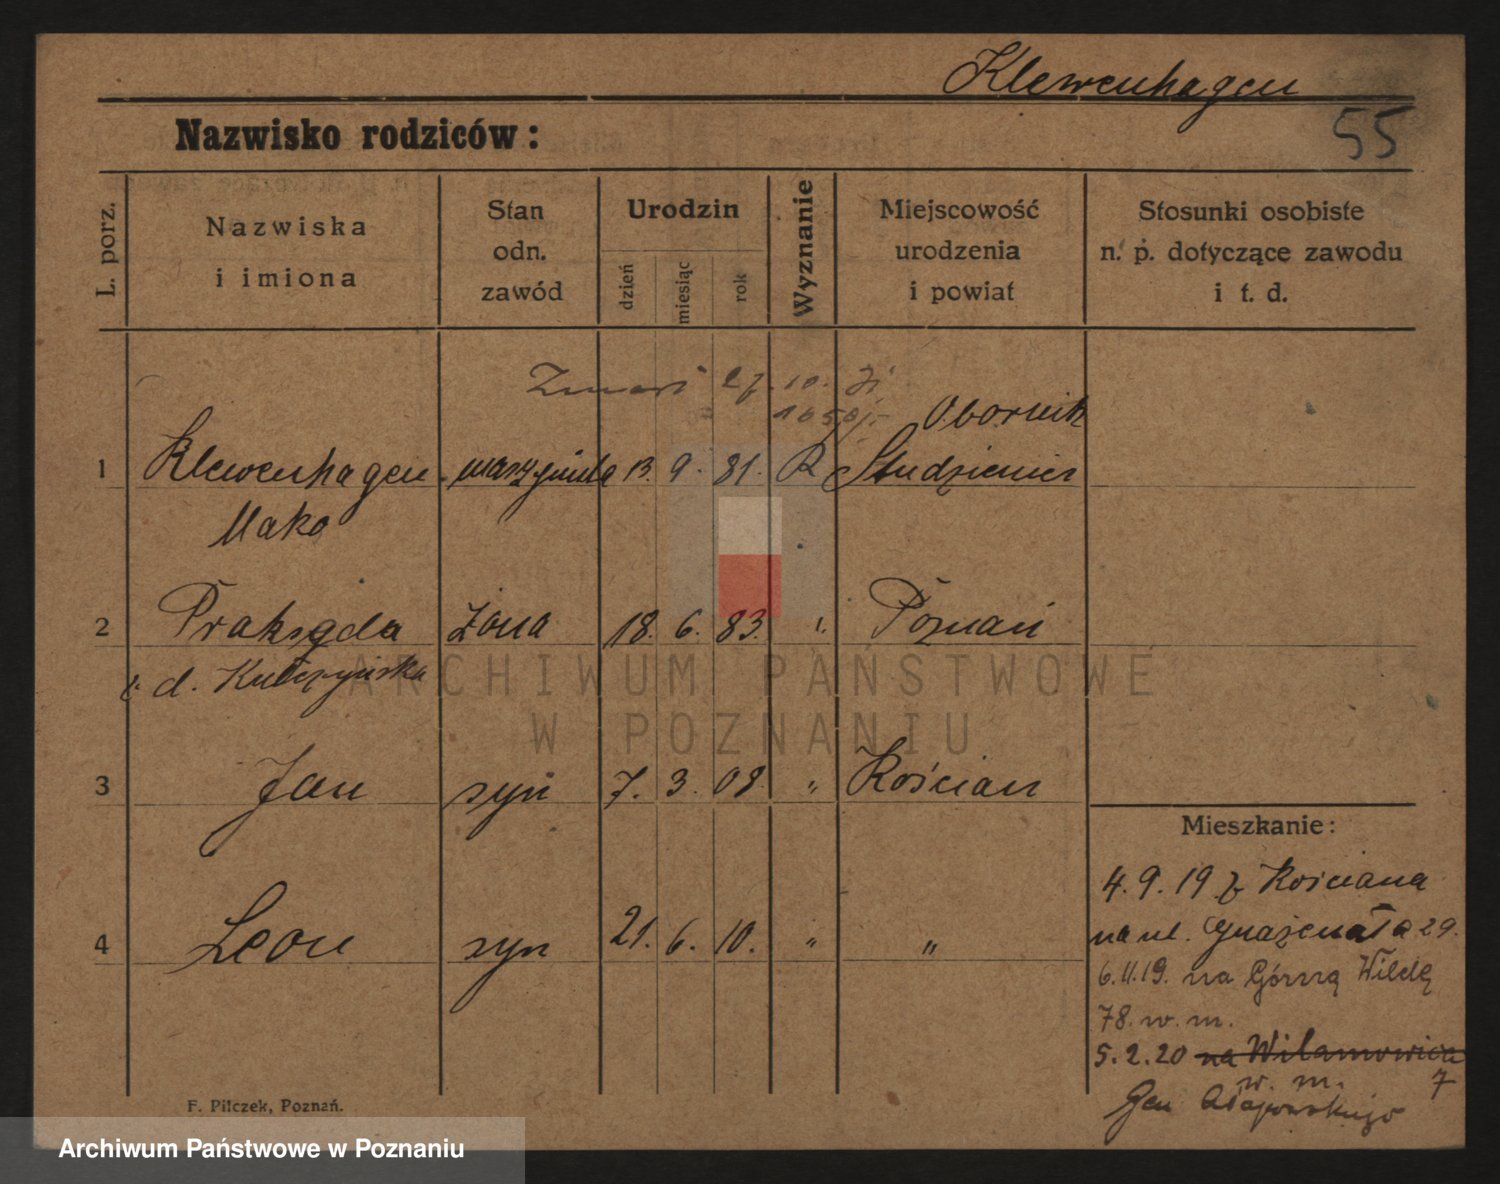 Klewenhagen
55
Nazwisko rodziców:
L. porz.
Nazwiska
i imiona
Stan
odn.
zawód
Urodzin
dzień
miesiąc
rok
Wyznanie
Miejscowość
urodzenia
i powiat
Stosunki osobiste
n. p. dotyczące zawodu
i t. d.
Zmarł 27.10.
Obornik
1 Klewenhagen maszynista 13. 9. 81. R Studzieniec
Mako
2 Praksęda żona 18. 6. 83. Poznań
d. Kulczyńska
3 Jan syn 7. 3. 08. " Kościan
4 Leon syn 21. 6. 10. " "
Mieszkanie:
4.9.19 z Kościana
na ul. 29.
6.11.19. na Górną Wildę
78. w. m.
5.2.20 na
w. m. 7
Gen
F. Pilczek, Poznań.
ARCHIWUM PAŃSTWOWE
W POZNANIU
Archiwum Państwowe w Poznaniu